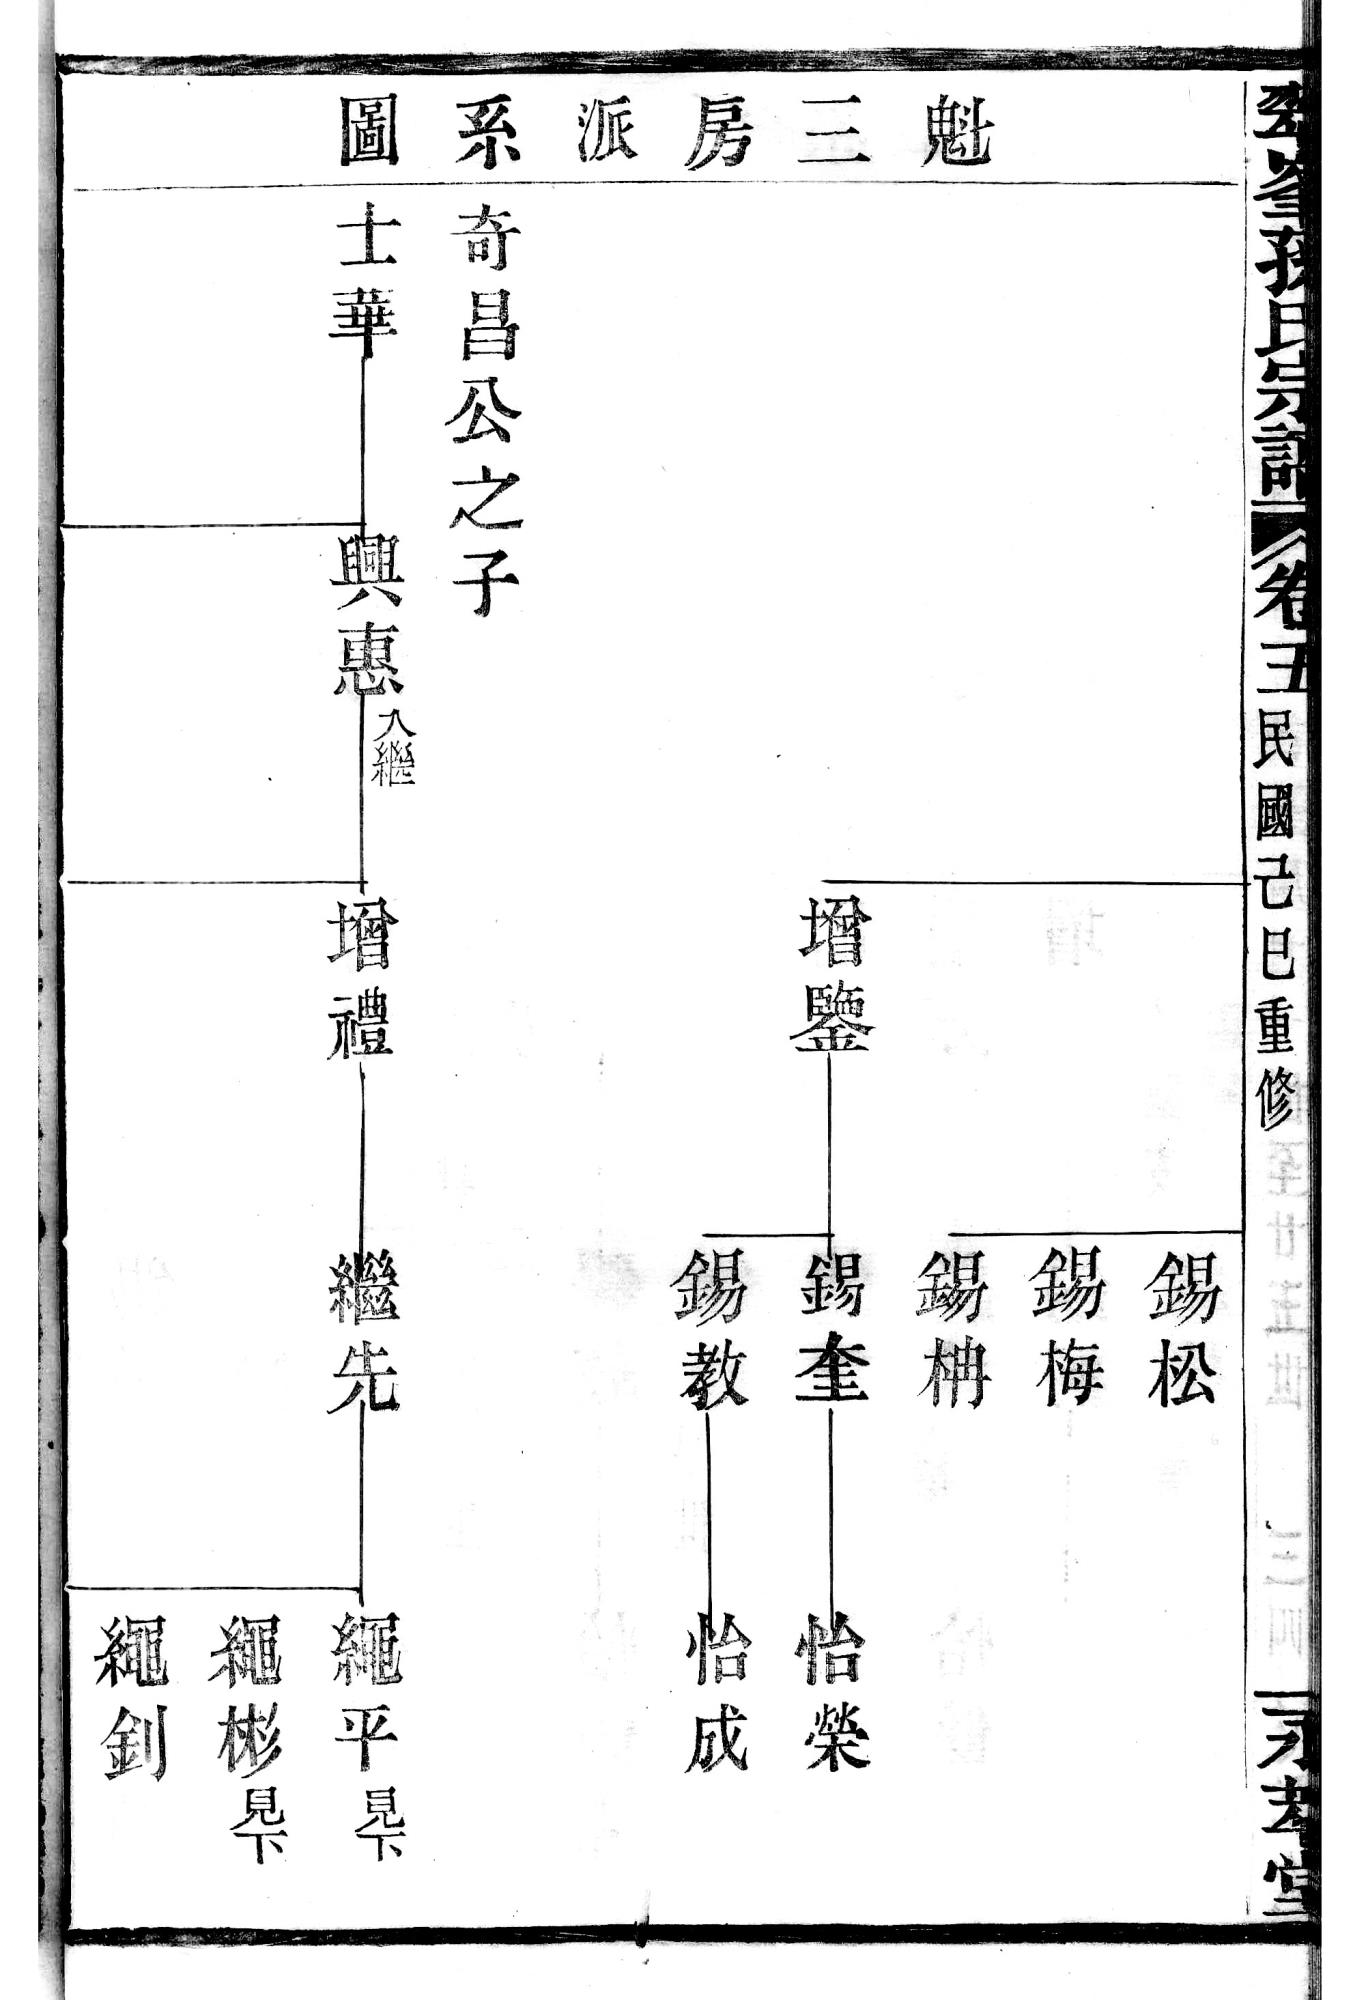 孫氏宗譜
卷五
民國己巳重修
堂
魁三房派系圖
錫松
錫梅
錫枬
增鑒
錫奎
怡榮
錫教
怡成
奇昌公之子
士華
興惠
入繼
增禮
繼先
繩平
見下
繩彬
見下
繩釗